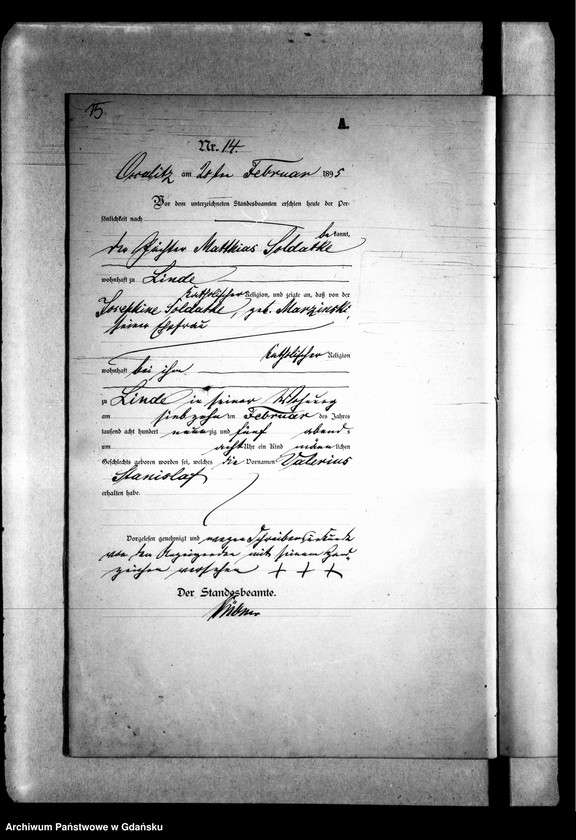 15
A.
Nr. 14.
am 20ten Februar 1895
Vor dem unterzeichneten Standesbeamten erschien heute der Per-
sönlichkeit nach
bekannt,
der Pächter Matthias Soldatke
wohnhaft zu Linde
Katholischer Religion, und zeigte an, daß von der
Josephine Soldatke, geb. Marzinske,
seiner Ehefrau
Katholischer Religion
wohnhaft bei ihm
zu Linde in seiner Wohnung
am siebzehn ten Februar des Jahres
tausend acht hundert neunzig und fünf abends
um acht Uhr ein Kind männlichen
Geschlechts geboren worden sei, welches die Vornamen Valerius
Stanislaf
erhalten habe.
Vorgelesen, genehmigt und wegen Schreibensunkunde
von dem Anzeigenden mit seinem Hand-
zeichen versehen + + +
Der Standesbeamte.
Archiwum Państwowe w Gdańsku